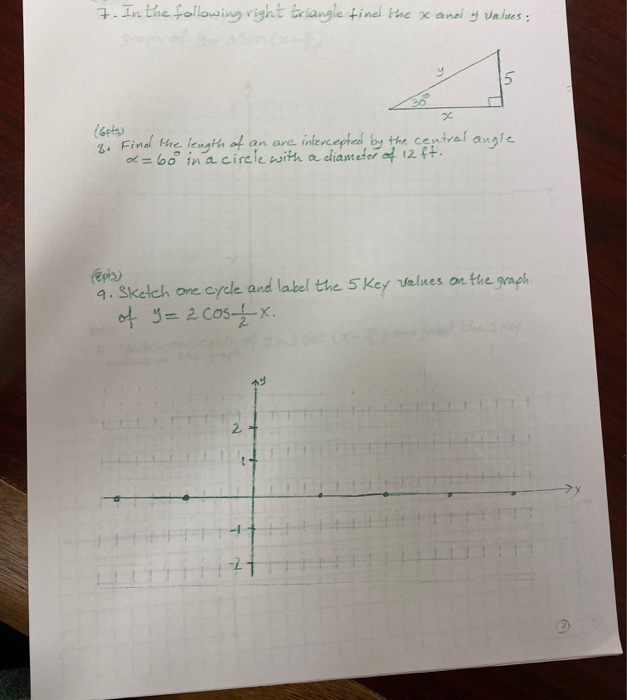 7. In the following right triangle find the x and y values:
y
5
30°
x
(6pts)
8. Find the length of an arc intercepted by the central angle
α = 60° in a circle with a diameter of 12 ft.
(8pts)
9. Sketch one cycle and label the 5 Key values on the graph
of y = 2 cos 1/2 x.
y
2
1
x
-1
-2
2